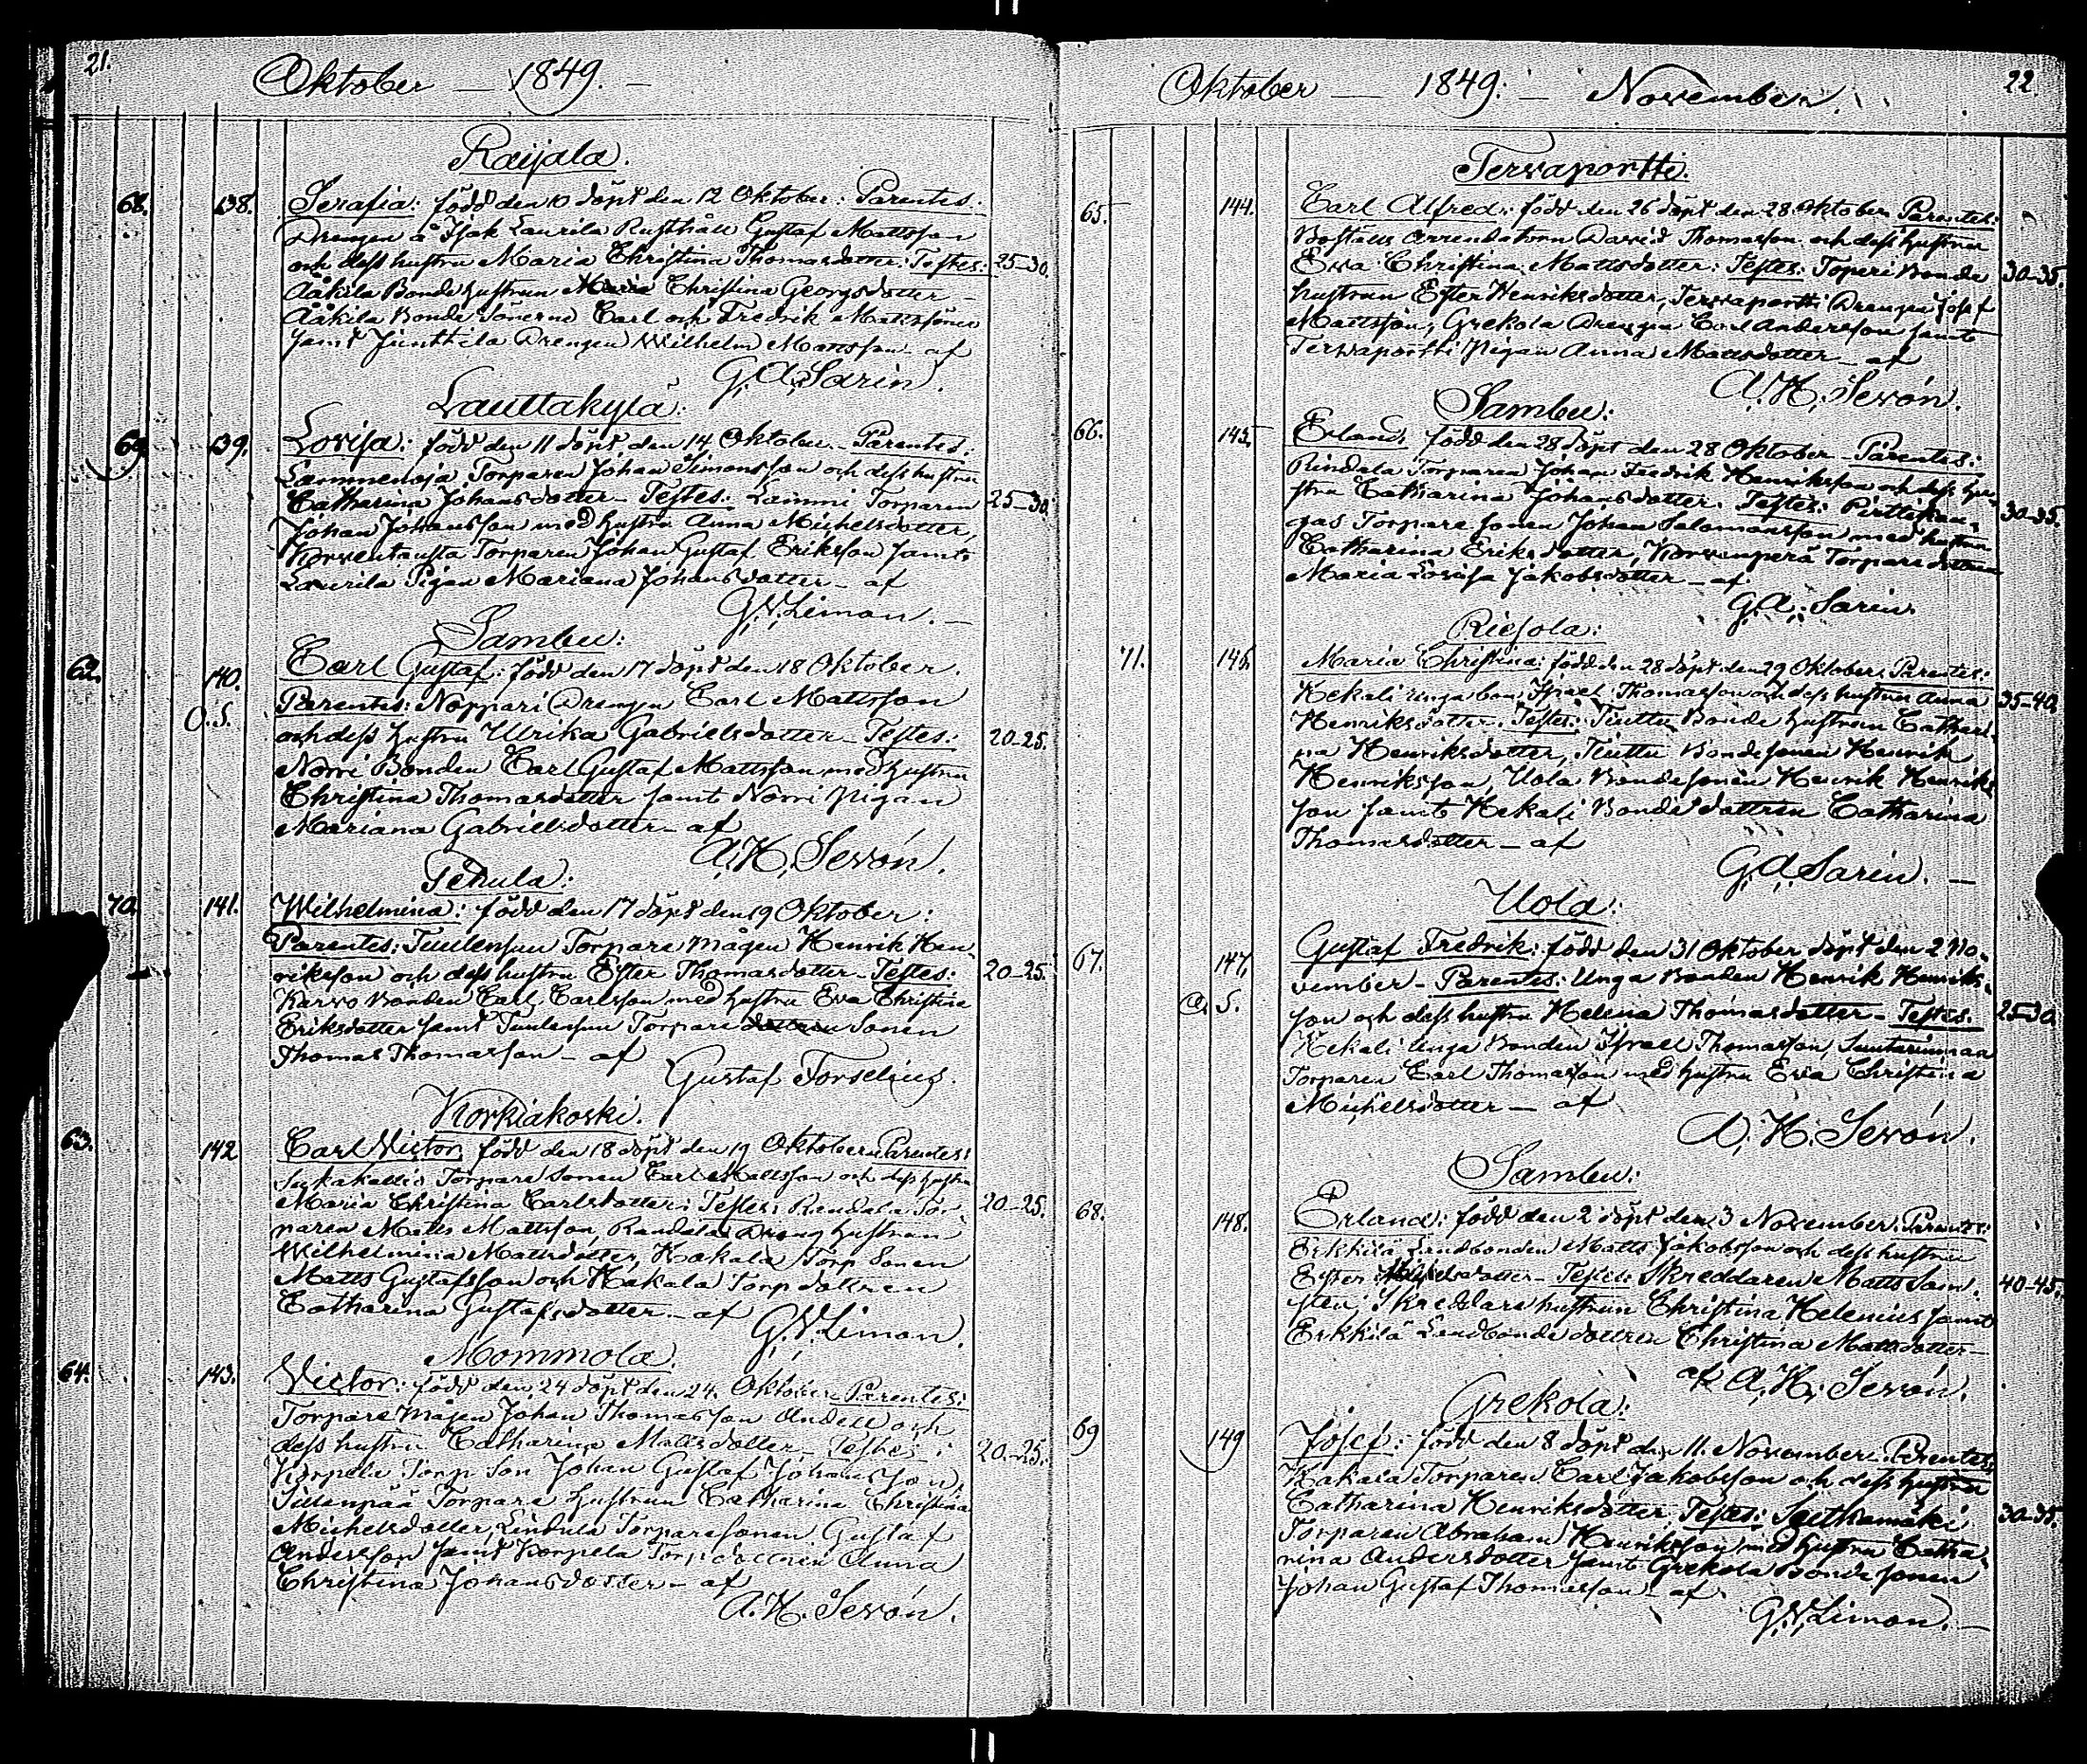 21.
Oktober — 1849. —
Raijala.
68. 138. Serafia: född den 10 döpt den 12 Oktober: Parentes:
Drengen å Isak Laurila Rusthåll Gustaf Mattsson
och dess hustru Maria Christina Thomasdotter: Testes: 25-30.
Ååkila Bonde hustrun Maria Christina Georgsdotter —
Ååkila Bonde sönerne Carl och Fredrik Mattssöner
samt Junttila Drengen Wilhelm Mattsson — af
G. A. Sarin.
Lauttakylä:
69. 139. Lovisa: född den 11 döpt den 14 Oktober — Parentes:
Lammenoja Torparen Johan Simonsson och dess hustru
Catharina Johansdotter — Testes: Lammi Torparen 25-30.
Johan Johansson med hustru Anna Michelsdotter,
Korventausta Torparen Johan Gustaf Eriksson samt
Laurila Pigan Mariana Johansdotter — af
G. V. Liman. —
Sambu:
62. 140. Carl Gustaf: född den 17 döpt den 18 Oktober.
O. S. Parentes: Noppari Drengen Carl Mattsson
och dess hustru Ulrika Gabrielsdotter — Testes: 20-25.
Norri Bonden Carl Gustaf Mattsson med hustru
Christina Thomasdotter samt Norri Pigan
Mariana Gabrielsdotter — af
A. H. Sevón.
Pehula:
70. 141. Wilhelmina: född den 17 döpt den 19 Oktober:
Parentes: Tuulensuu Torpare mågen Henrik Hen-
riksson och dess hustru Ester Thomasdotter — Testes: 20-25.
Karvo Bonden Carl Carlsson med hustru Eva Christina
Eriksdotter samt Tuulensuu Torpare dottren Sonen
Thomas Thomasson — af
Gustaf Forselius.
Korkiakoski.
63. 142. Carl Victor, född den 18 döpt den 19 Oktober. Parentes:
Torpare Sonen Carl Mattsson och dess hustru
Maria Christina Carlsdotter: Testes: Randala Tor- 20-25.
paren Matts Mattsson, Randala Dreng hustrun
Wilhelmina Mattsdotter, Hakala Torp Sonen
Matts Gustafsson och Hakala Torp dottren
Catharina Gustafsdotter — af
G. V. Liman.
Mommola.
64. 143. Victor: född den 24 döpt den 24. Oktober. Parentes:
Torpare mågen Johan Thomasson Andell och
dess hustru Catharina Mattsdotter — Testes: 20-25.
Korpela Torp Son Johan Gustaf Johansson,
Sillenpää Torpare hustrun Catharina Christina
Michelsdotter, Lindula Torparesonen Gustaf
Andersson samt Korpela Torp dottren Anna
Christina Johansdotter — af
A. H. Sevón.
22.
Oktober — 1849: — November.
Tervaportti.
65. 144. Carl Alfred: född den 26 döpt den 28. Oktober. Parentes:
Boställs Arrendatorn David Thomasson och dess hustru
Eva Christina Mattsdotter: Testes: Toperi Bonde 30-35.
hustrun Ester Henriksdotter, Tervaportti Drengen Josef
Mattsson, Grekola Drengen Carl Andersson samt
Tervaportti Pigan Anna Mattsdotter — af
A. H. Sevón.
Sambu:
66. 145. Erland, född den 28 döpt den 28 Oktober — Parentes:
Rindala Torparen Johan Fredrik Henriksson och dess hu-
stru Catharina Johansdotter. Testes: Pirttikan- 30-35.
gas Torpare sonen Johan Salomonsson med hustru
Catharina Eriksdotter, Korvenperä Torpare dottren
Maria Lovisa Jakobsdotter — af
G. A. Sarin.
Riesola:
71. 146. Maria Christina: född den 28 döpt den 29 Oktober. Parentes:
Kekali Unga bon. Israel Thomasson och dess hustru Anna 35-40.
Henriksdotter. Testes: Tiuttu Bonde hustrun Cathari-
na Henriksdotter, Tiuttu Bondesonen Henrik
Henriksson, Uola Bondesonen Henrik Henriks-
son samt Kekali Bonde dottren Catharina
Thomasdotter — af
G. A. Sarin. —
Uola:
67. 147. Gustaf Fredrik: född den 31 Oktober döpt den 2 No-
vember — Parentes: Unga Bonden Henrik Henriks-
O. S. son och dess hustru Helena Thomasdotter — Testes: 25-30.
Kekali Unga Bonden Israel Thomasson,
Torparen Carl Thomasson med hustru Eva Christina
Michelsdotter — af
A. H. Sevón.
Sambu:
68. 148. Erland: född den 2 döpt den 3 November. Parentes:
Erkkilä Landbonden Matts Jakobsson och dess hustru
Ester Michelsdotter — Testes: Skreddaren Matts Sam- 40-45.
sten, Skreddare hustrun Christina Helenius samt
Erkkilä Landbonde dottren Christina Mattsdotter —
af A. H. Sevón.
Grekola:
69 149 Josef: född den 8 döpt den 11. November. Parentes:
Hakala Torparen Carl Jakobsson och dess hustru
Catharina Henriksdotter. Testes: 30-35.
Torparen Abraham Henriksson med hustru Catha-
rina Andersdotter samt Grekola Bondesonen
Johan Gustaf Thomasson — af
G. V. Liman. —